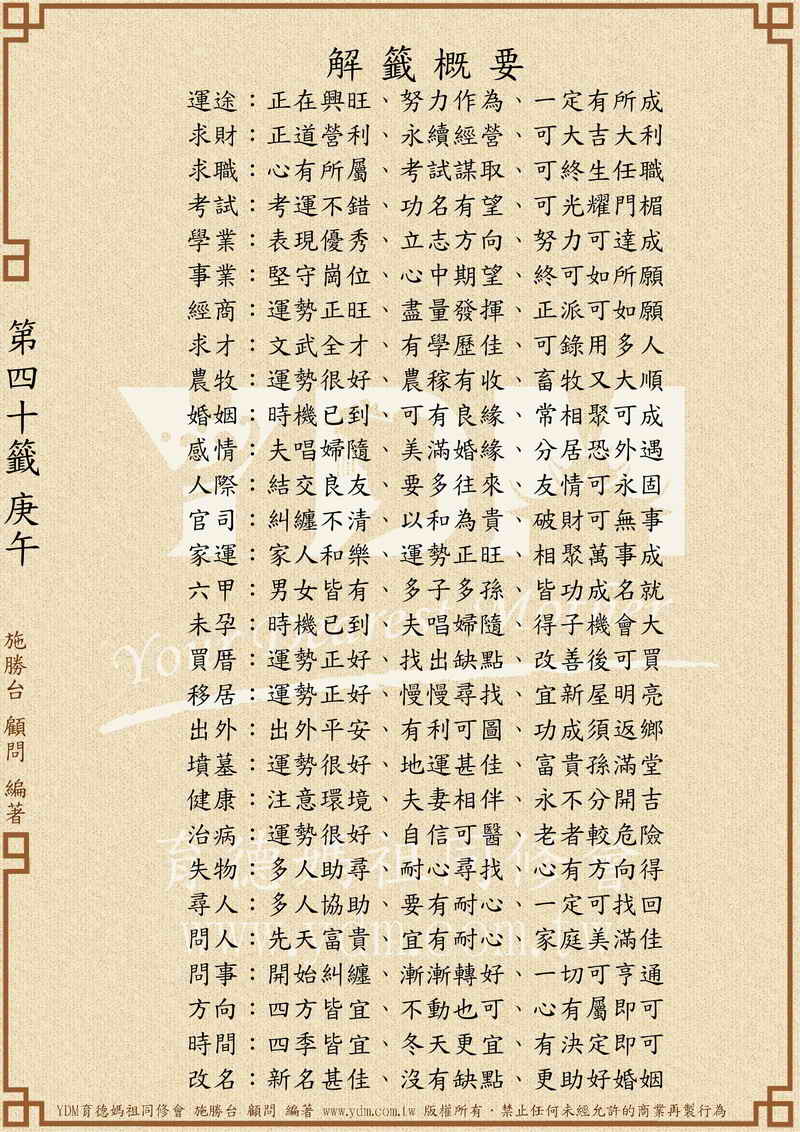 解籤概要
運途：正在興旺、努力作為、一定有所成
求財：正道營利、永續經營、可大吉大利
求職：心有所屬、考試謀取、可終生任職
考試：考運不錯、功名有望、可光耀門楣
學業：表現優秀、立志方向、努力可達成
事業：堅守崗位、心中期望、終可如所願
經商：運勢正旺、盡量發揮、正派可如願
求才：文武全才、有學歷佳、可錄用多人
農牧：運勢很好、農稼有收、畜牧又大順
婚姻：時機已到、可有良緣、常相聚可成
感情：夫唱婦隨、美滿婚緣、分居恐外遇
人際：結交良友、要多往來、友情可永固
官司：糾纏不清、以和為貴、破財可無事
家運：家人和樂、運勢正旺、相聚萬事成
六甲：男女皆有、多子多孫、皆功成名就
未孕：時機已到、夫唱婦隨、得子機會大
買厝：運勢正好、找出缺點、改善後可買
移居：運勢正好、慢慢尋找、宜新屋明亮
出外：出外平安、有利可圖、功成須返鄉
墳墓：運勢很好、地運甚佳、富貴孫滿堂
健康：注意環境、夫妻相伴、永不分開吉
治病：運勢很好、自信可醫、老者較危險
失物：多人助尋、耐心尋找、心有方向得
尋人：多人協助、要有耐心、一定可找回
問人：先天富貴、宜有耐心、家庭美滿佳
問事：開始糾纏、漸漸轉好、一切可亨通
方向：四方皆宜、不動也可、心有屬即可
時間：四季皆宜、冬天更宜、有決定即可
改名：新名甚佳、沒有缺點、更助好婚姻
第四十籤 庚午
施勝台 顧問 編著
YDM
Your Dearest Mother
育德媽祖同修會
www.ydm.com.tw
YDM育德媽祖同修會 施勝台 顧問 編著 www.ydm.com.tw 版權所有．禁止任何未經允許的商業再製行為